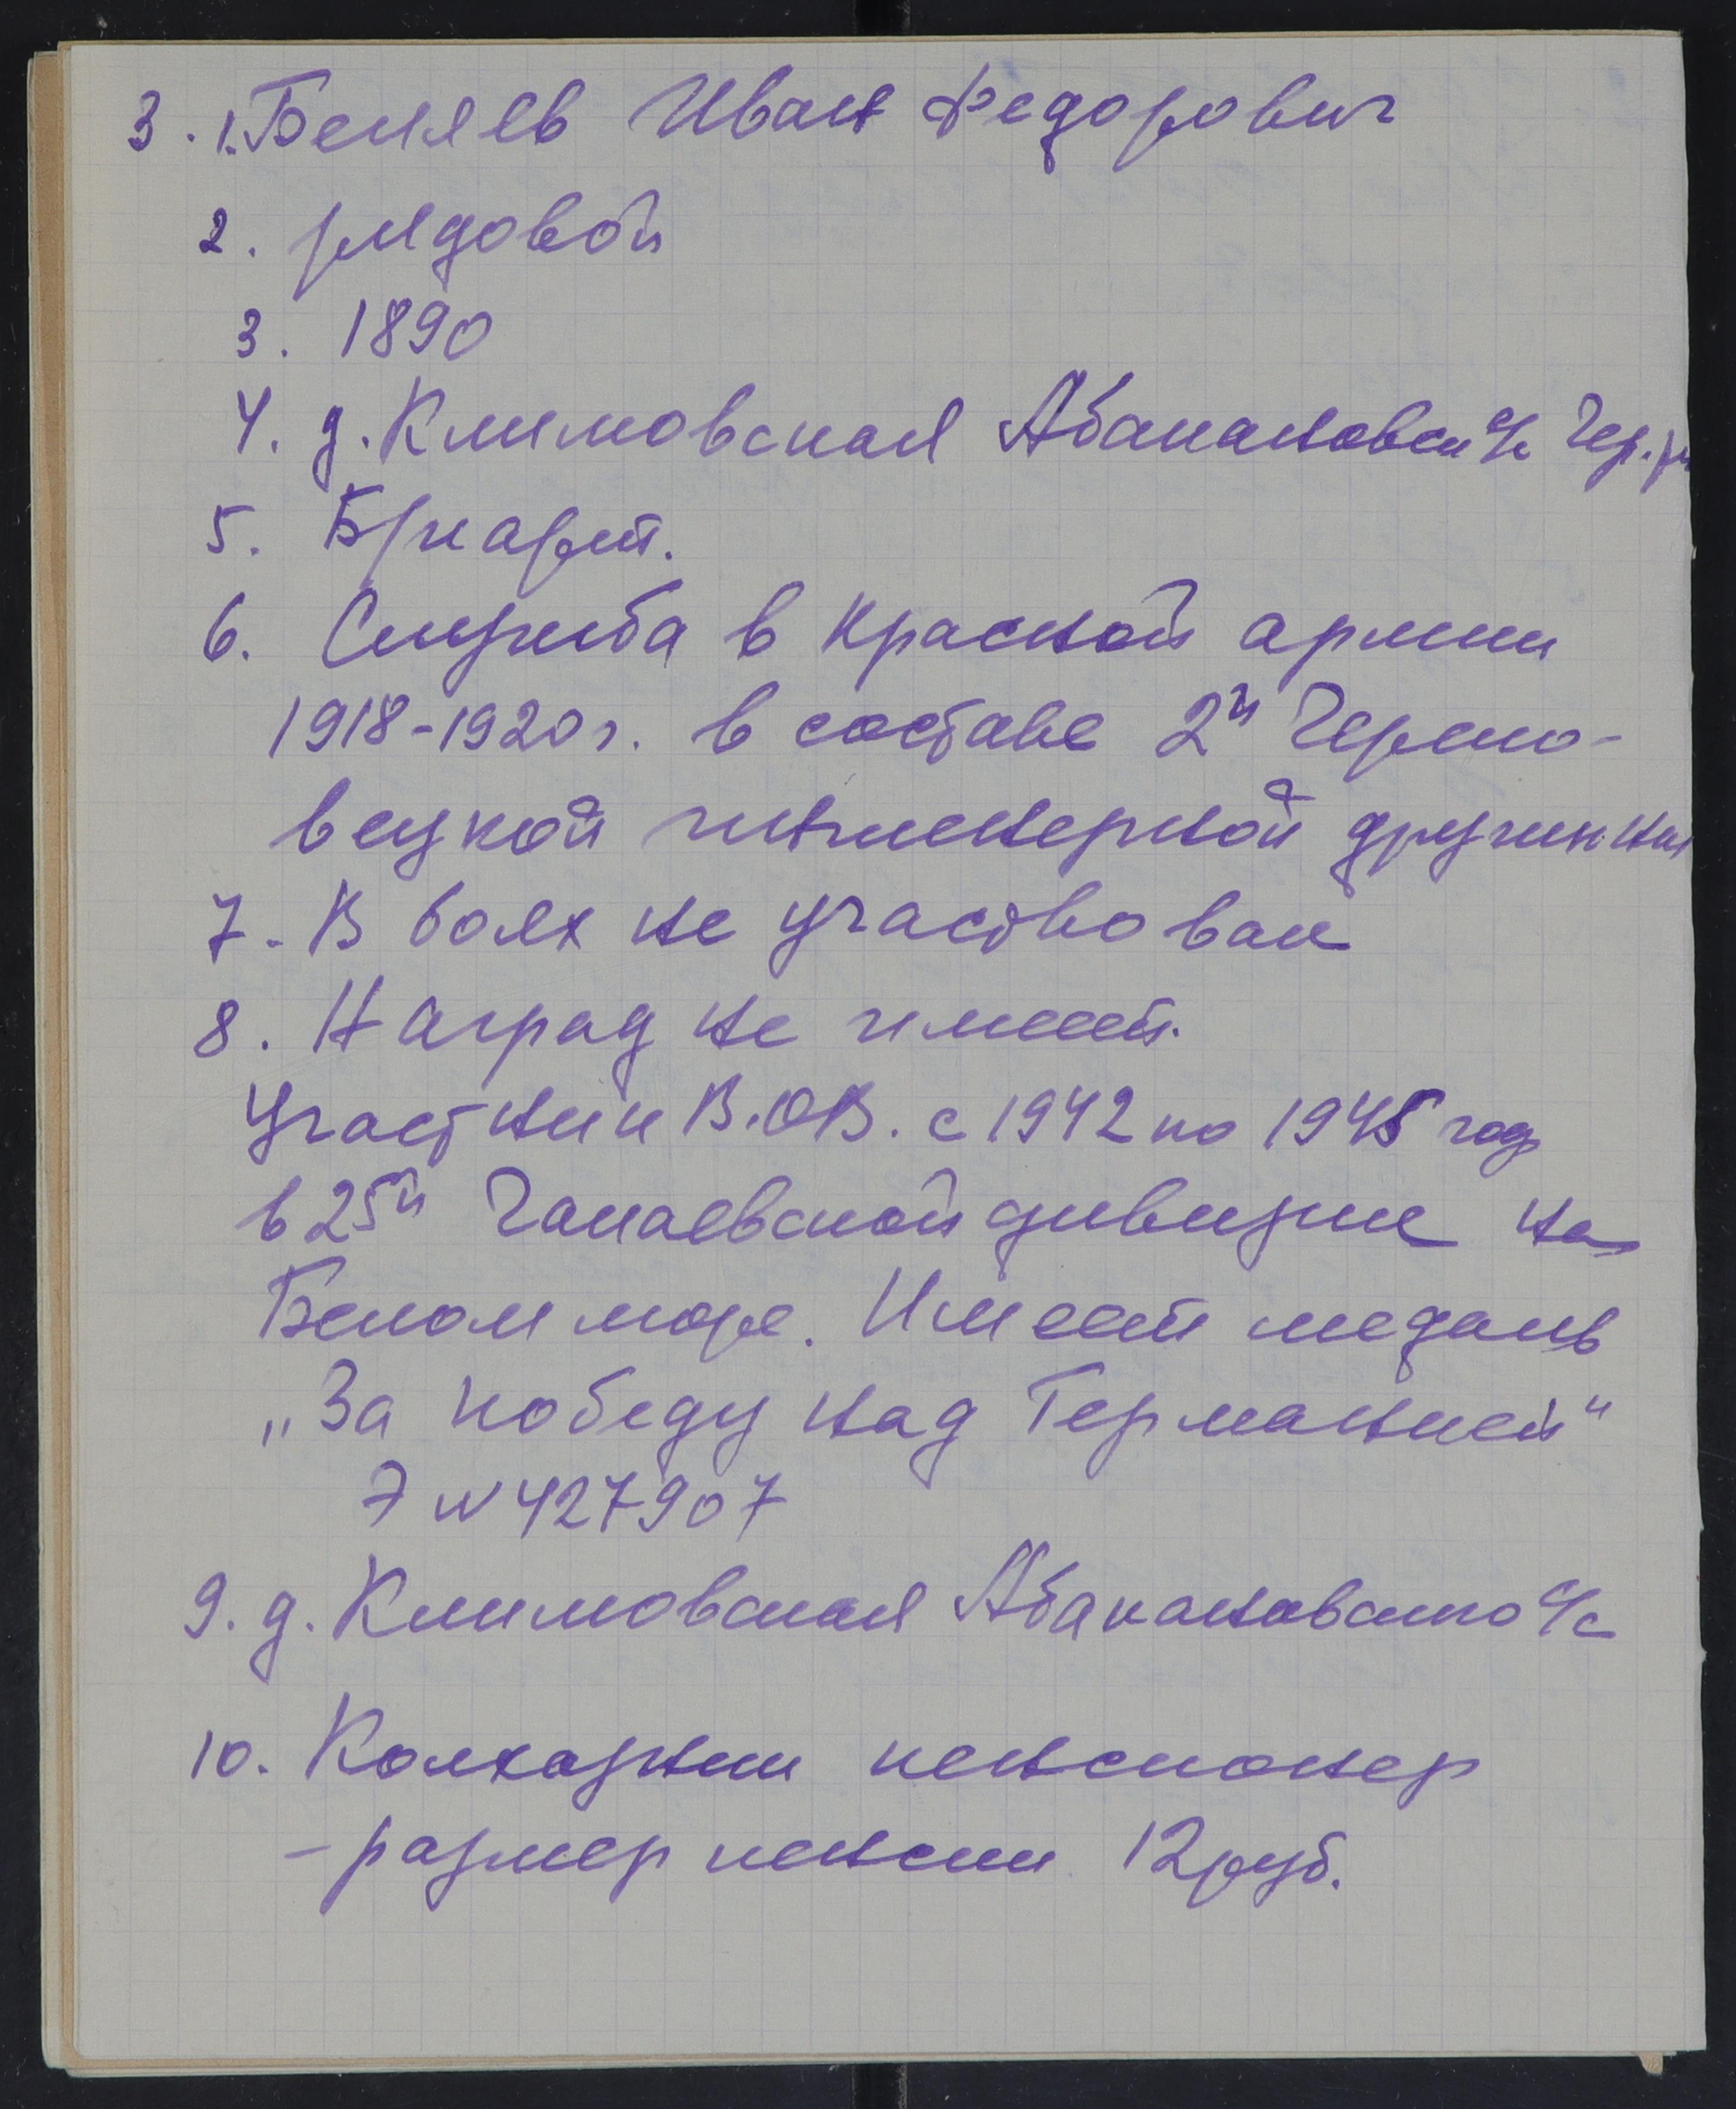 3. 1. Беляев Иван Федорович
2. рядовой
3. 1890
4. д. Климовская Абакановск с/с Чер. р
5. Б/парт.
6. Служба в Красной армии
1918-1920 г. в составе 2й Черепо-
вецкой инженерной дружины
7. В боях не участвовал
8. Наград не имеет.
Участник В.ОВ. с 1942 по 1945 год
в 25й Чапаевской дивизии на
Белом море. Имеет медаль
„За победу над Германией"
Э N 427907
9. д. Климовская Абакановского с/с
10. Колхозник пенсионер
- размер пенсии 12 руб.